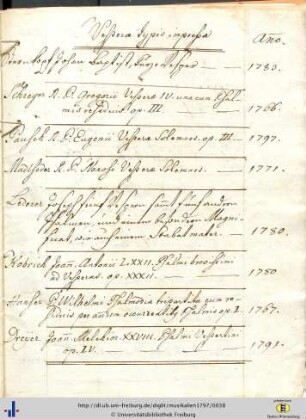 Vesperæ typis impressæ
Ano.
Johan Baptist, 1783.
Schreyer R. P. Gregorii Vesperæ IV. una cum Psal-
mis op. III. 1766.
Pausch R. P. Eugenii Vesperæ Solemnes. op. III. 1797.
Madlseder R. P. Nonoso Vesperæ Solemnes. 1771.
Lederer Joseph fünf Vespern samt fünf andern
Psalmen, und einem besondern Magni-
ficat, wie auch einem Stabat mater. 1780.
Kobrich Joan. Antonii L. XXII. Psalmi breves
ad Vesperas. op. XXXII. 1750
P. Wilhelmi Psalmodia tripartita
per annum Psalmis op. I. 1767.
Dreyer Joan. Melchior. XXVIII. Psalmi Vespertini
op. IV. 1791.
http://dl.ub.uni-freiburg.de/diglit/musikalien1797/0038
© Universitätsbibliothek Freiburg